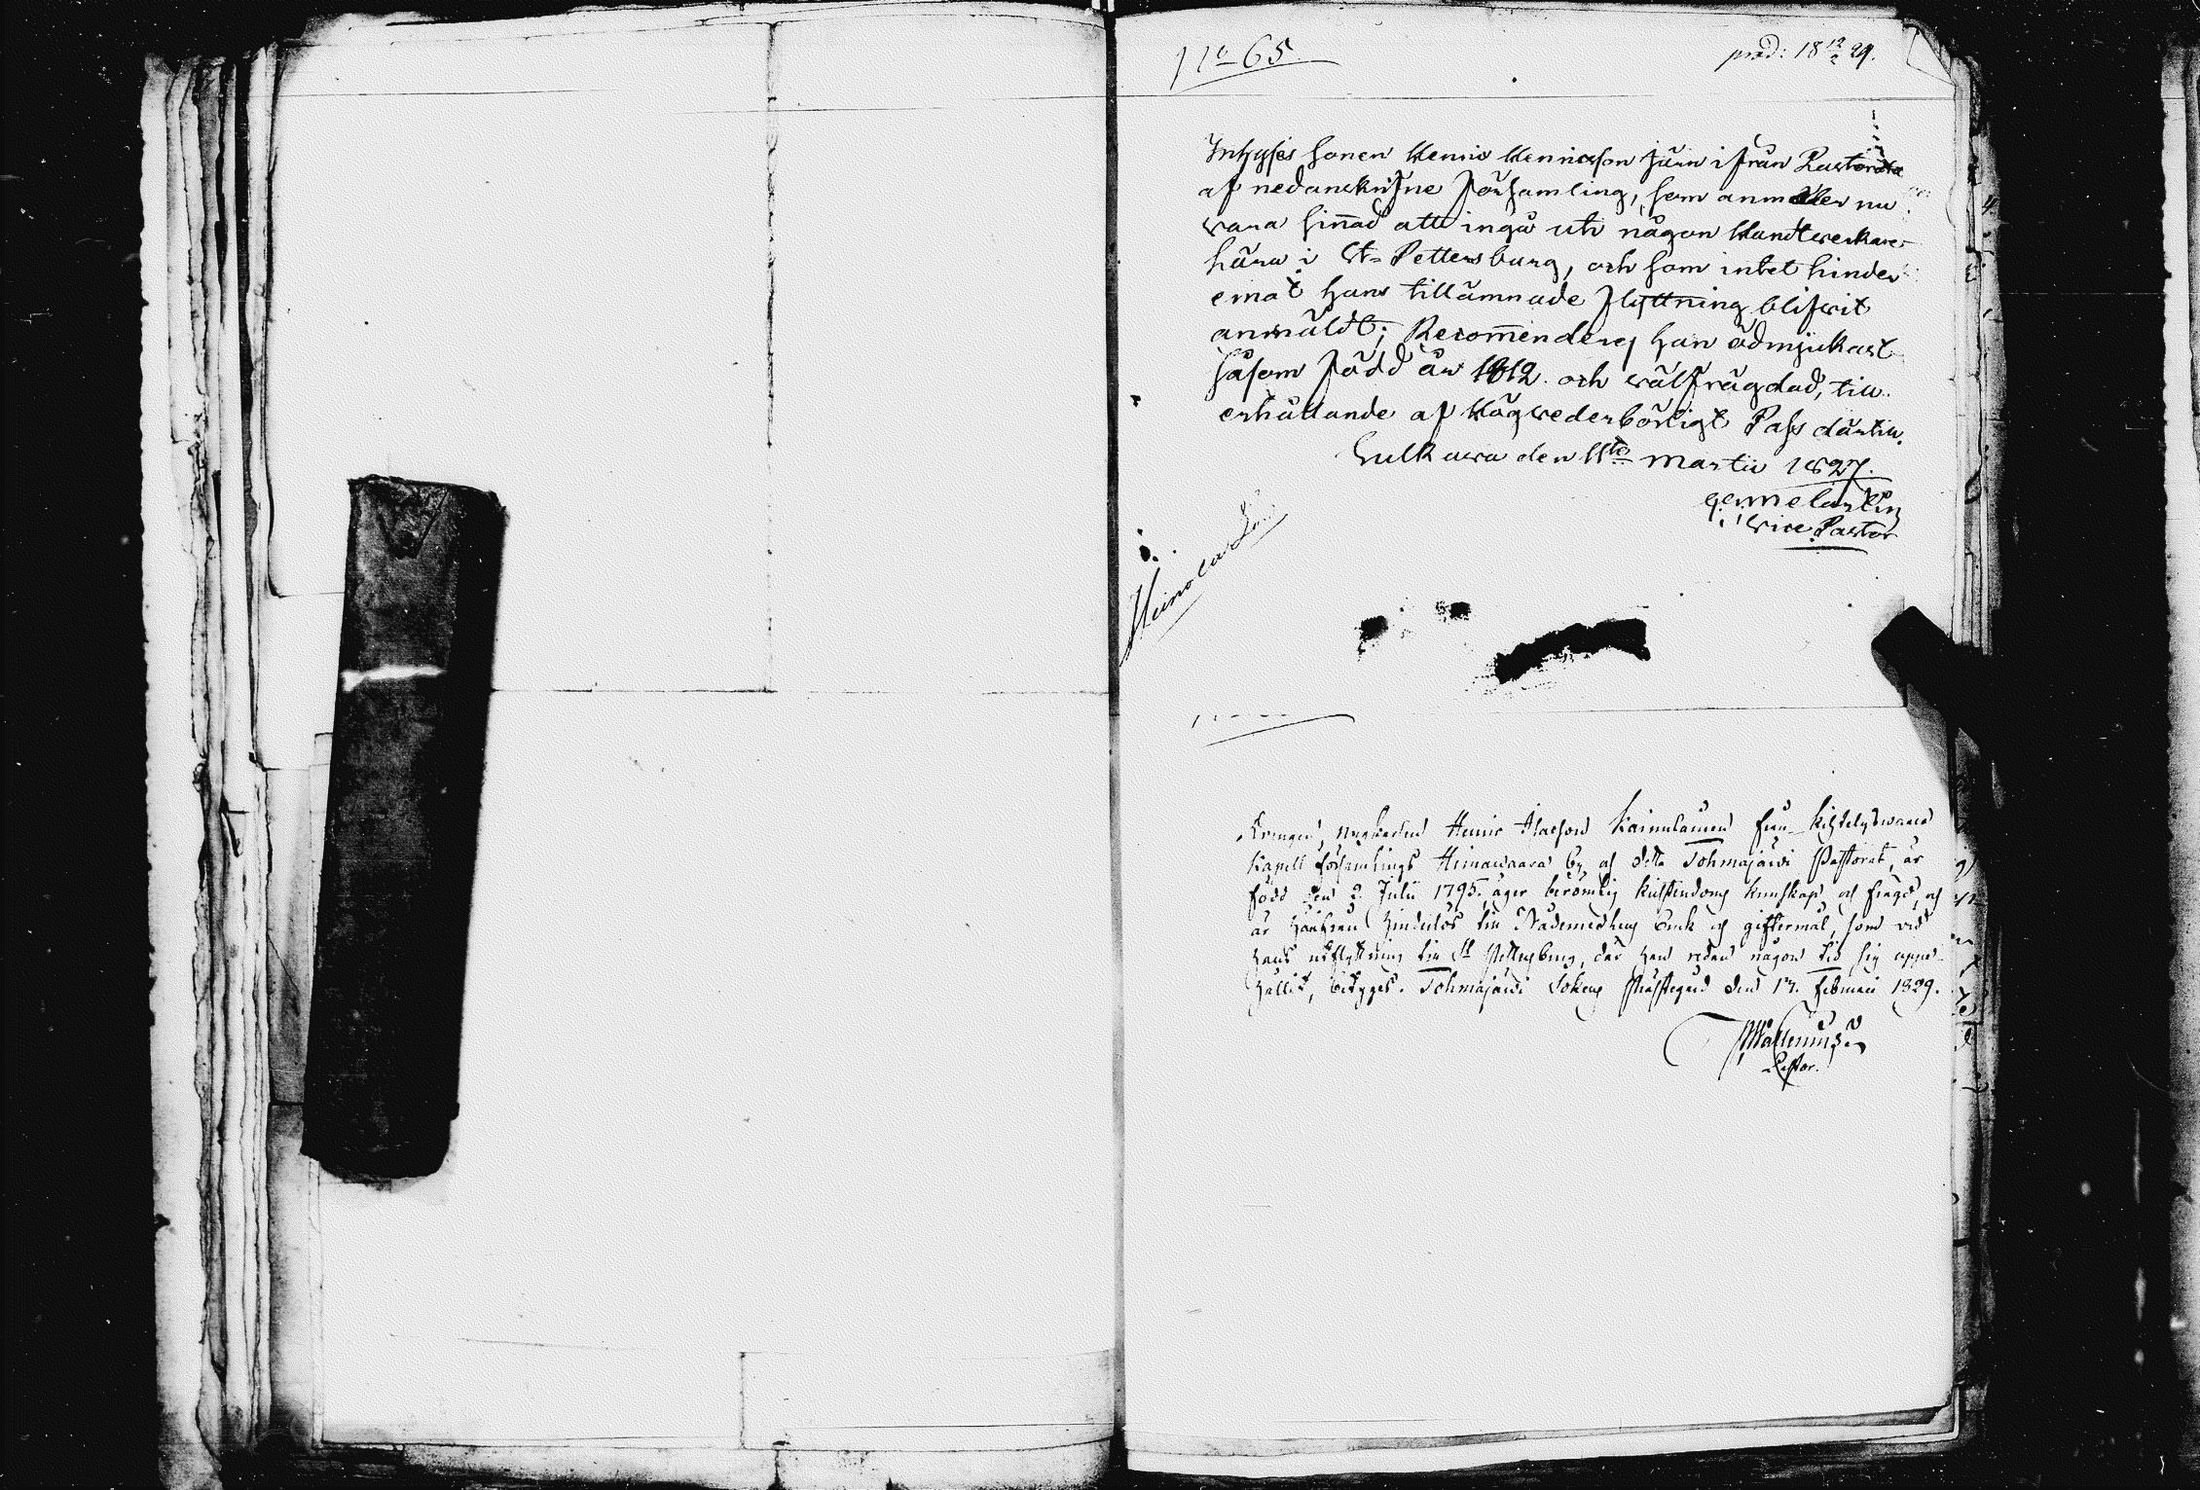 No 65.
prod: 18 12/2 29.
Inhyses sonen Henric Henricson Järn ifrån
af nedanskrifne Församling, som anmäler nu
wara sinnad att ingå uti någon Handtverkare
härw i St= Pettersburg, och som intet hinder
emot hans tillämnade flyttning blifvit
anmäldt; Recommenderas han ödmjukast
såsom född år 1812. och wälfrägdad, till
erhållande af Högwederbörligt Pass därtill.
Sulkawa den 11te Martii 1827.
Vice Pastor
Drengen, Henric Olacson Kainulainen från Kihtelyswaara
Kapell församlings Heinawaara By af detta Tohmajärwi Pastorat, är
född den 2 Julii 1795. äger berömlig kristendoms kunskap och frägd, och
är härifrån hinderlös till Nådemedlens bruk och giftermål, som vid
hans utflyttning till St Pettersburg, där han redan någon tid sig uppe-
hållit, betyges. Tohmajärvi Sokns Prästegård den 17. Februari 1829.
Wallenius
Pastor.